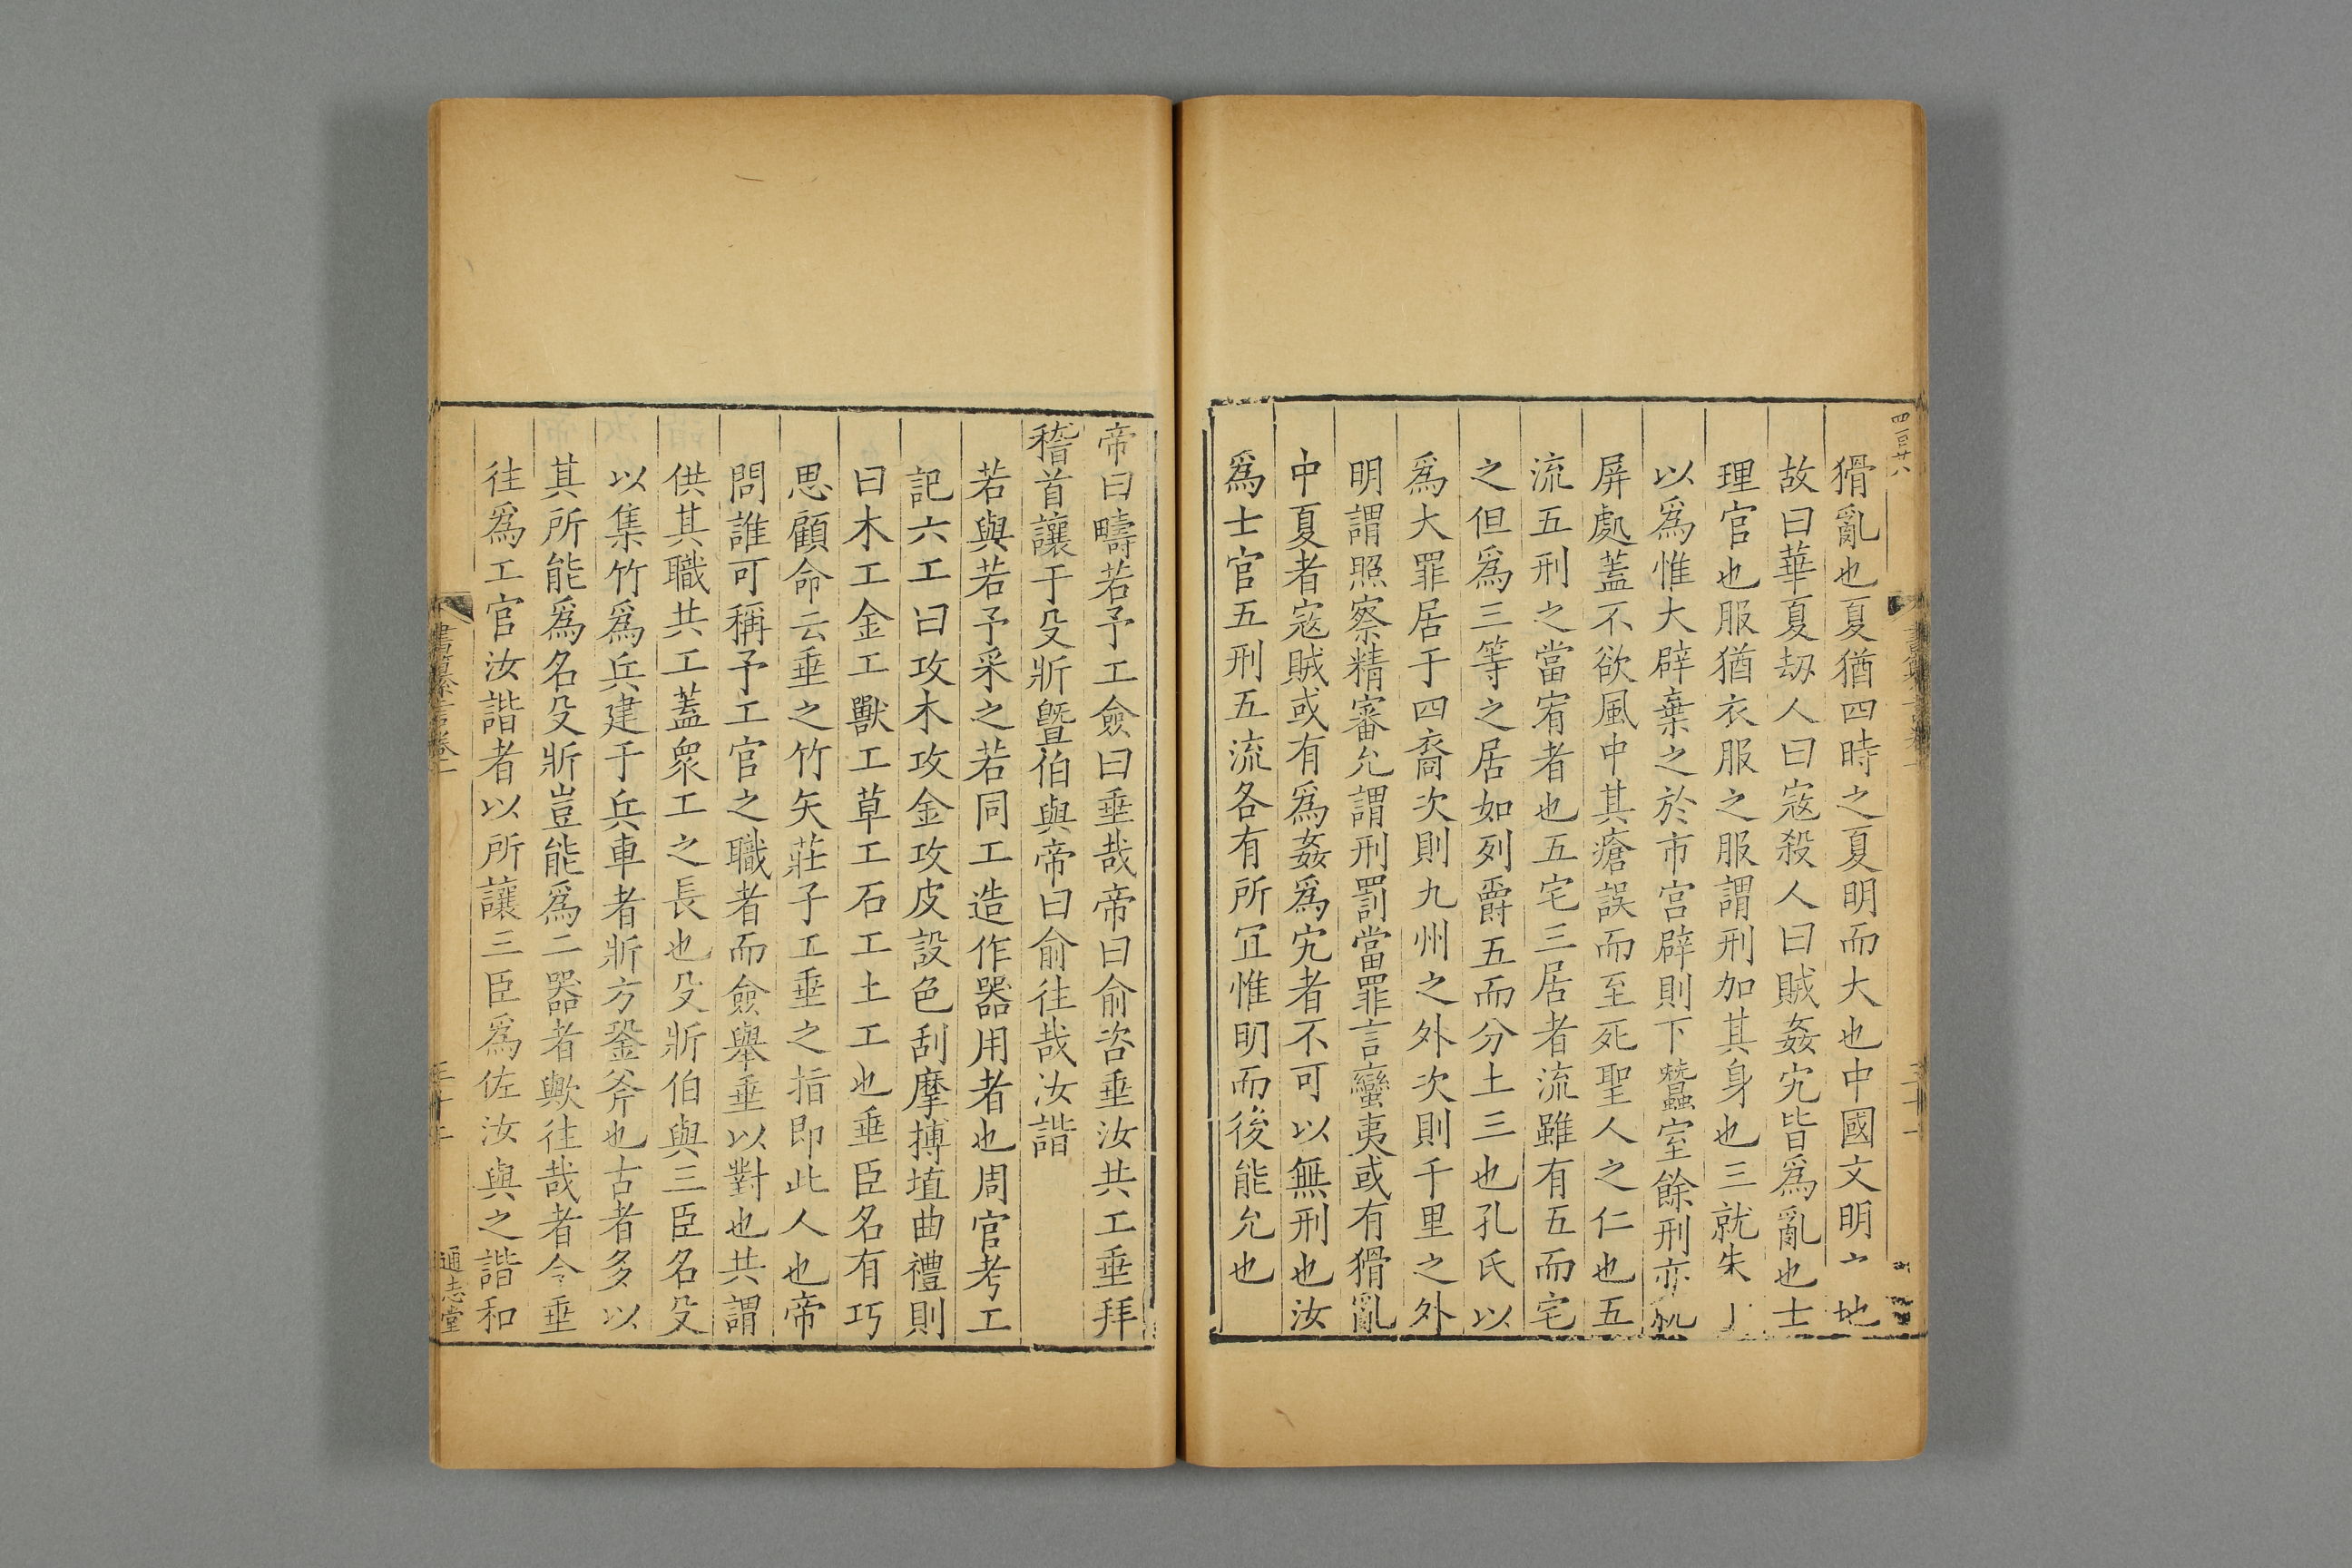 四百廿八
猾亂也夏猶四時之夏明而大也中國文明之地
故曰華夏刼人曰寇殺人曰賊姦宄皆爲亂也士
理官也服猶衣服之服謂刑加其身也三就朱
以爲惟大辟棄之於市宮辟則下蠶室餘刑亦就
屏處蓋不欲風中其瘡誤而至死聖人之仁也五
流五刑之當宥者也五宅三居者流雖有五而宅
之但爲三等之居如列爵五而分土三也孔氏以
爲大罪居于四裔次則九州之外次則千里之外
明謂照察精審允謂刑罰當罪言蠻夷或有猾亂
中夏者寇賊或有爲姦爲宄者不可以無刑也汝
爲士官五刑五流各有所冝惟明而後能允也
帝曰疇若予工僉曰垂哉帝曰俞咨垂汝共工垂拜
稽首讓于殳斨曁伯與帝曰俞往哉汝諧
若與若予采之若同工造作器用者也周官考工
記六工曰攻木攻金攻皮設色刮摩摶埴曲禮則
曰木工金工獸工草工石工土工也垂臣名有巧
思顧命云垂之竹矢莊子工垂之指即此人也帝
問誰可稱予工官之職者而僉舉垂以對也共謂
供其職共工蓋衆工之長也殳斨伯與三臣名殳
以集竹爲兵建于兵車者斨方銎斧也古者多以
其所能爲名殳斨豈能爲二器者歟往哉者令垂
往爲工官汝諧者以所讓三臣爲佐汝與之諧和
書纂言卷一
通志堂